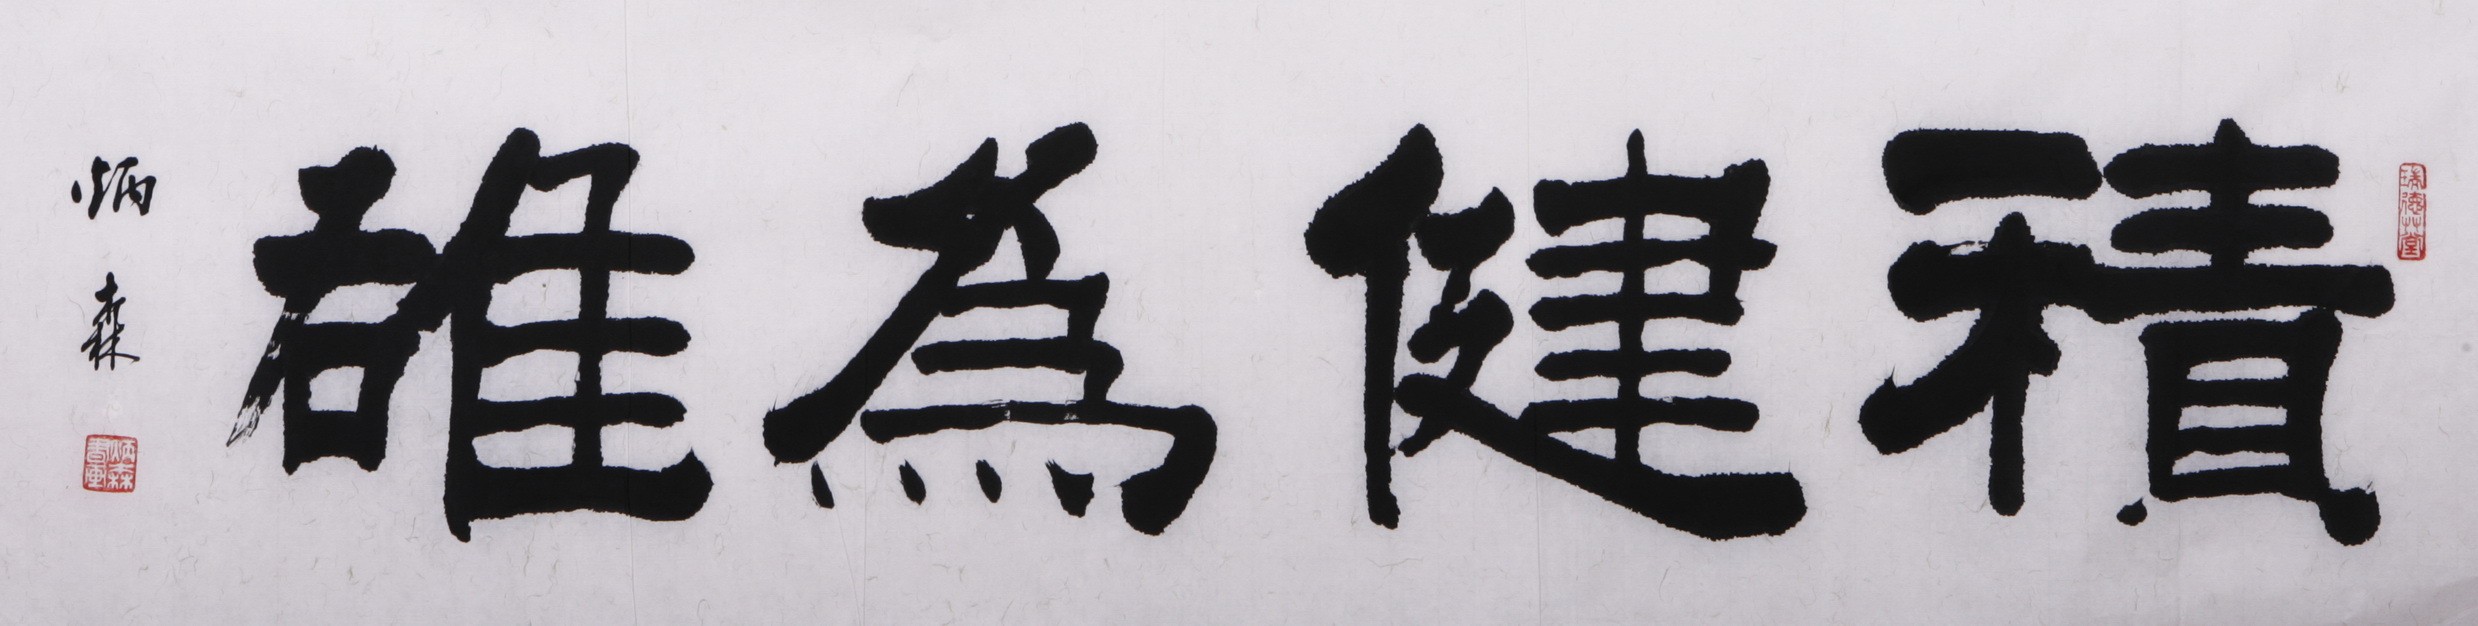 積健為雄
炳森
炳森書画